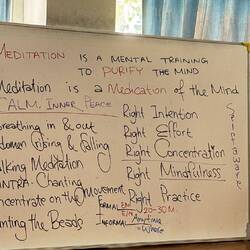 MEDITATION IS A MENTAL TRAINING
TO PURIFY THE MIND
Meditation is a Medication of the Mind
CALM, INNER PEACE
Breathing in & out
Abdomen Rising & Falling
Walking Meditation
MANTRA - Chanting
Concentrate on the Movement
Counting the Beads
Right Intention
Right Effort
Right Concentration
Right Mindfulness
Right Practice
FORMAL 20-30M
INFORMAL Anytime